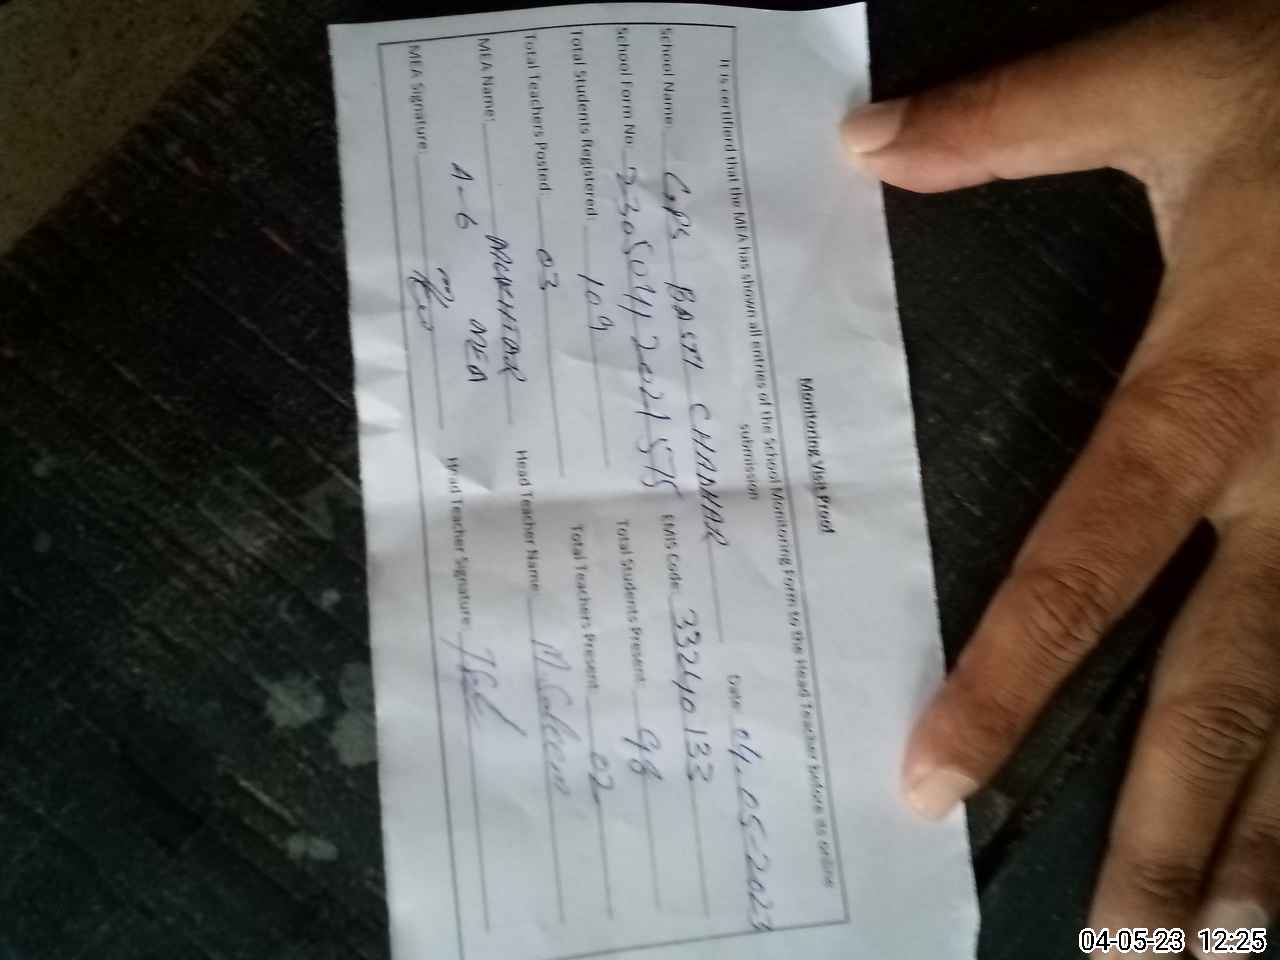 Monitoring Visit Proof
It is certified that the MEA has shown all entries of the School Monitoring Form to the Head Teacher before its online
submission
Date: 04-05-2023
School Name: GPS BASTI CHANNAR
School Form No: EMIS Code: 33240133
Total Students Registered: 109 Total Students Present: 98
Total Teachers Posted: 03 Total Teachers Present: 02
MEA Name: Head Teacher Name: M. Saleem
A-6 MEA
MEA Signature: Head Teacher Signature:
04-05-23 12:25